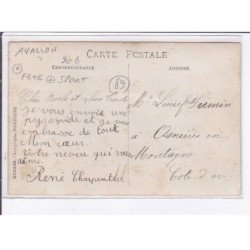 AVALLON
906
CARTE POSTALE
CORRESPONDANCE
ADRESSE
FÊTE + SPORT
89
Cher oncle et chere tante
je vous envoie une
pyramide et je vous
embrasse de tout
Mon cœur
Votre neveu qui vous
aime
René Charpentier
Mr Firmin
a Asnières en
Montagne
Cote d'or